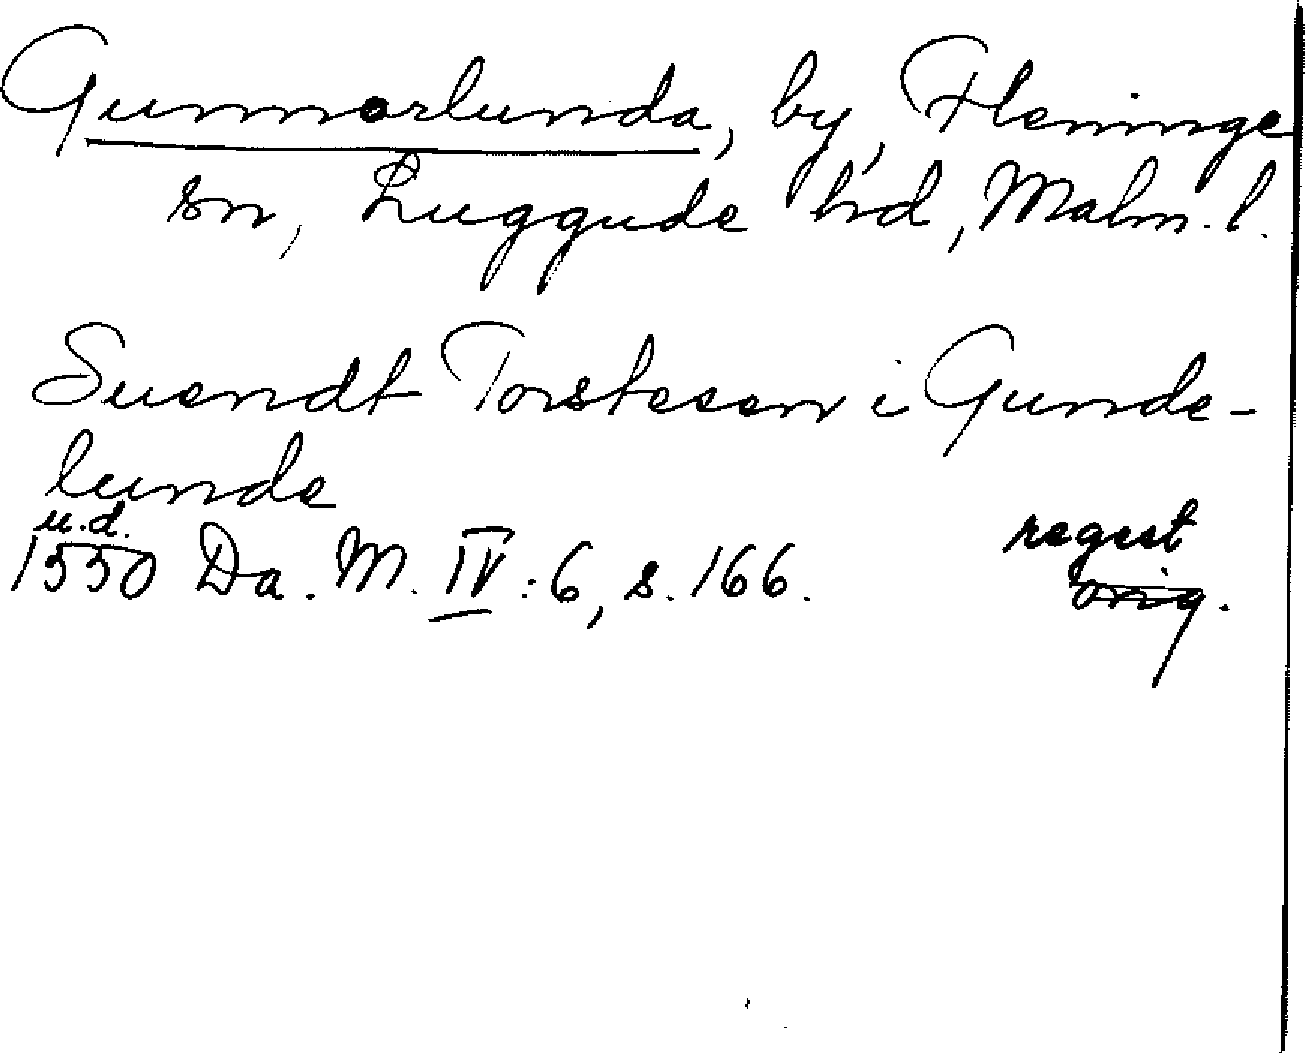 Gunnarlunda, by, Fleninge
sn, Luggude hd, Malm. l.
Suendt Torstesen i Gunde-
lunde
u.d.
1550 Da. M. IV: 6, s. 166.
regest
orig.